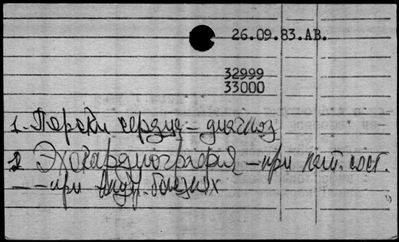 26.09.83.АВ.
32999
33000
1. Пороки сердца – диагноз
2 Эхокардиография – при пат. сост.
– – при внутр. болезнях